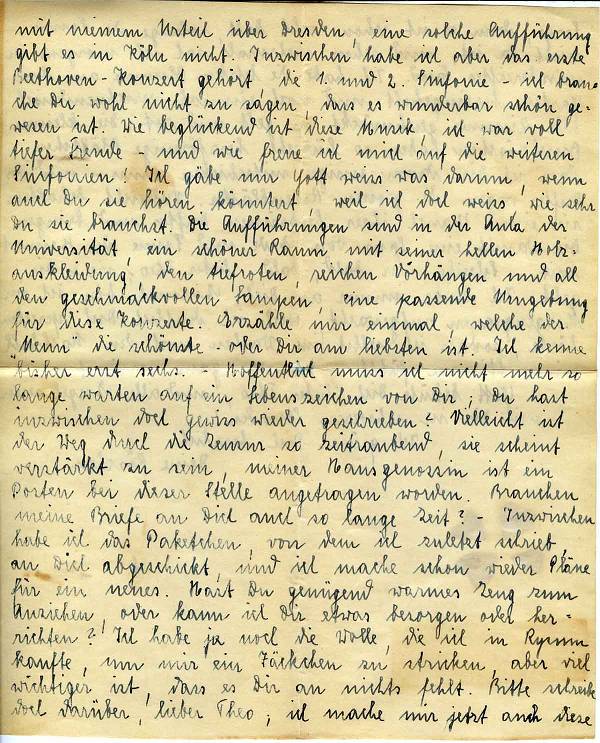 mit meinem Urteil über Dresden, eine solche Aufführung
gibt es in Köln nicht. Inzwischen habe ich aber das erste
Beethoven-Konzert gehört die 1. und 2. Sinfonie - ich brau-
che Dir wohl nicht zu sagen, dass es wunderbar schön ge-
wesen ist. Wie beglückend ist diese Musik, ich war voll
tiefer Freude - und wie freue ich mich auf die weiteren
Sinfonien! Ich gäbe nur Gott weiss was darum, wenn
auch Du sie hören könntest, weil ich doch weiss, wie sehr
Du sie brauchst. Die Aufführungen sind in der Aula der
Universität, ein schöner Raum mit seiner hellen Holz-
auskleidung, den tiefroten, reichen Vorhängen und all
den geschmackvollen Lampen, eine passende Umgebung
für diese Konzerte. Erzähle mir einmal, welche der
"Neun" die schönste - oder Dir am liebsten ist. Ich kenne
bisher erst sechs. - Hoffentlich muss ich nicht mehr so
lange warten auf ein Lebenszeichen von Dir; Du hast
inzwischen doch gewiss wieder geschrieben? Vielleicht ist
der Weg durch die Zensur so zeitraubend, sie scheint
verstärkt zu sein, meiner Hausgenossin ist ein
Posten bei dieser Stelle angetragen worden. Brauchen
meine Briefe an Dich auch so lange Zeit? - Inzwischen
habe ich das Paketchen, von dem ich zuletzt schrieb,
an Dich abgeschickt, und ich mache schon wieder Pläne
für ein neues. Hast Du genügend warmes Zeug zum
Anziehen, oder kann ich Dir etwas besorgen oder her-
richten? Ich habe ja noch die Wolle, die ich in
kaufte, um mir ein Jäckchen zu stricken, aber viel
wichtiger ist, dass es Dir an nichts fehlt. Bitte schreibe
doch darüber, lieber Theo; ich mache mir jetzt auch diese